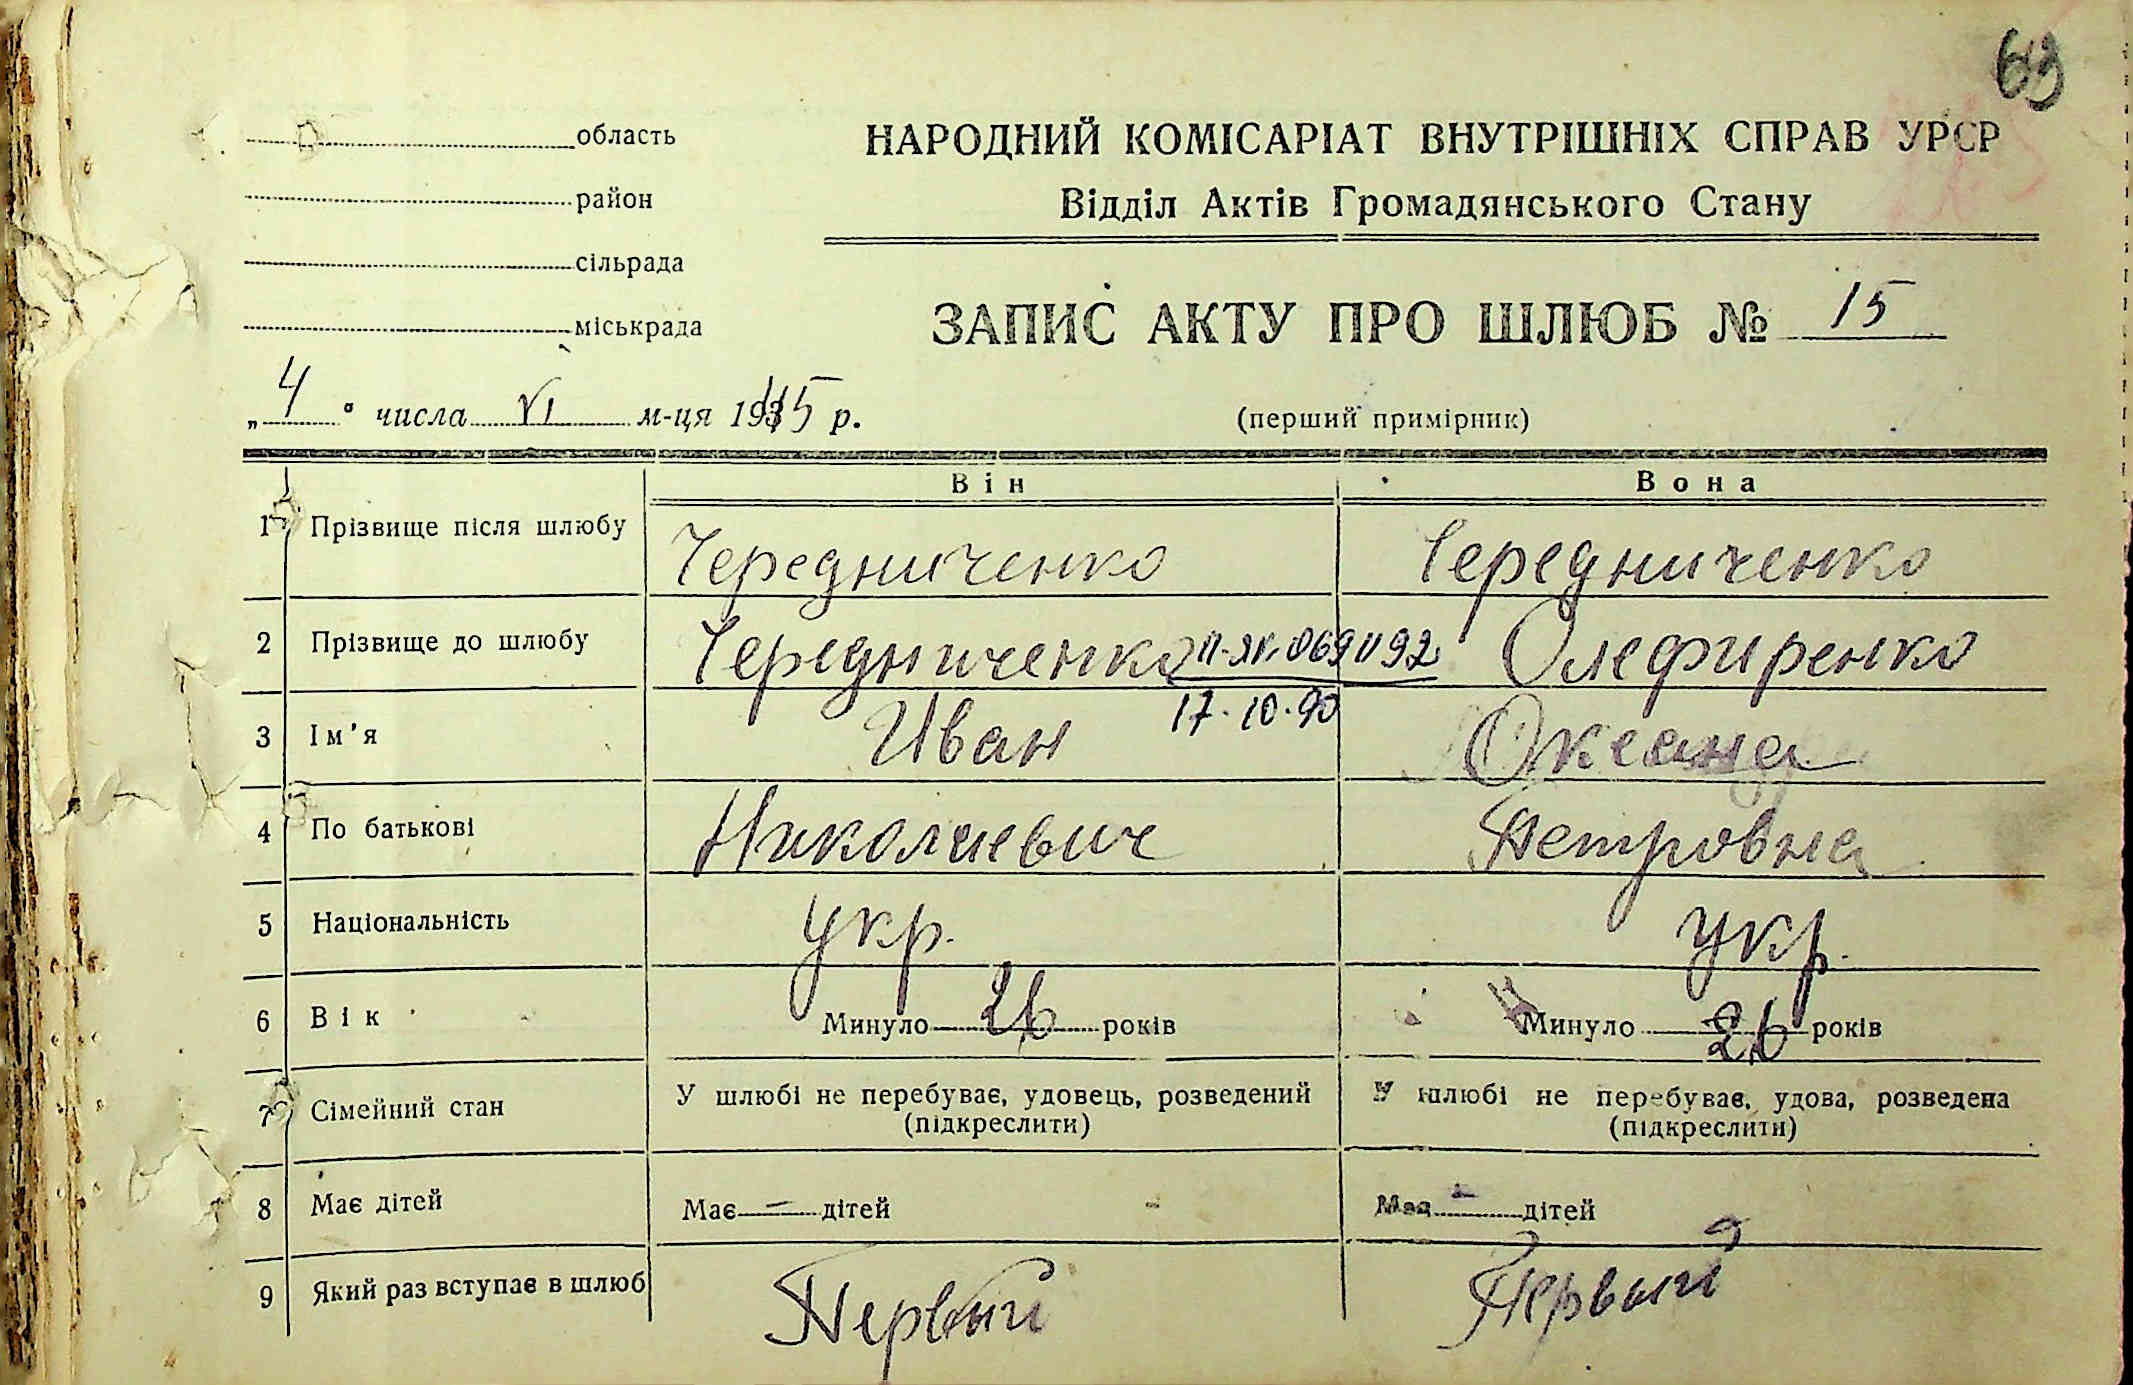 63
область
район
сільрада
міськрада
НАРОДНИЙ КОМІСАРІАТ ВНУТРІШНІХ СПРАВ УРСР
Відділ Актів Громадянського Стану
ЗАПИС АКТУ ПРО ШЛЮБ № 15
„ 4 " числа VI м-ця 1945 р.
(перший примірник)
Він Вона
1 Прізвище після шлюбу Чередниченко Чередниченко
2 Прізвище до шлюбу Чередниченко II-ЯК 069092 Олефиренко
17.10.90
3 Ім'я Иван Оксана
4 По батькові Николаевич Петровна
5 Національність укр. укр.
6 Вік Минуло 26 років Минуло 26 років
7 Сімейний стан У шлюбі не перебуває, удовець, розведений У шлюбі не перебуває, удова, розведена
(підкреслити) (підкреслити)
8 Має дітей Має — дітей Має — дітей
9 Який раз вступає в шлюб Первый Первый